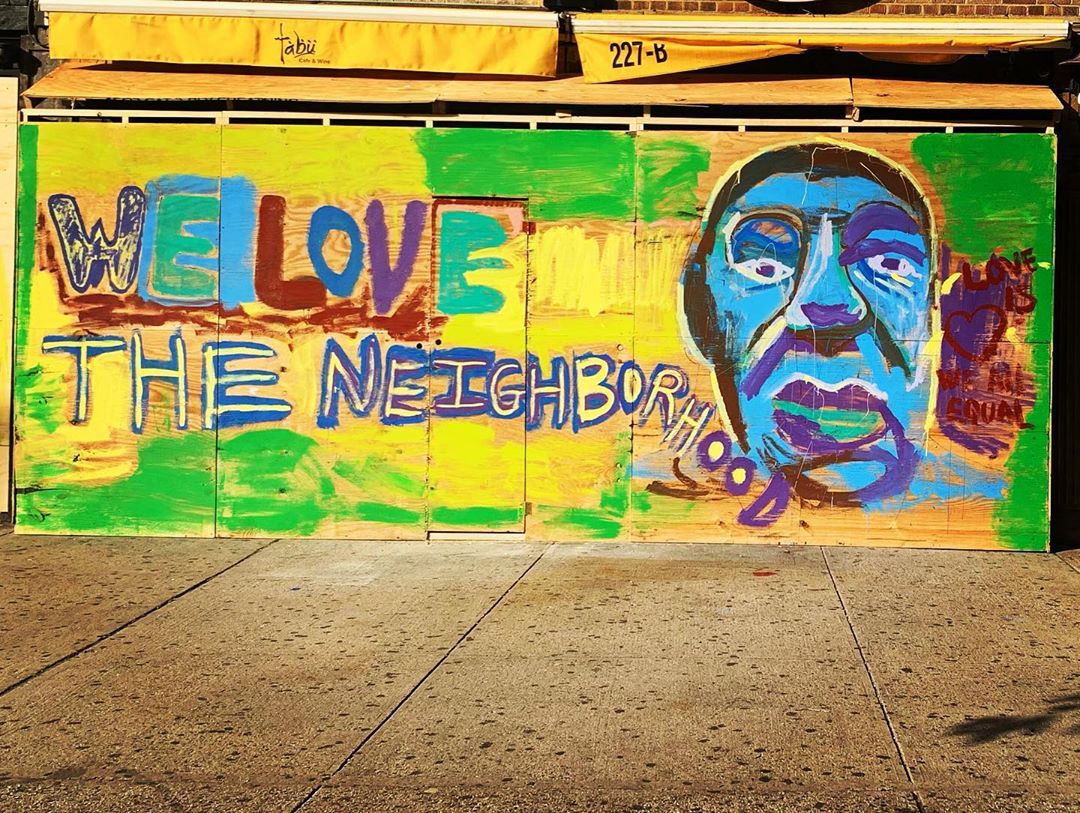 Tàbü
Cafe & Wine
227-B
WE LOVE
THE NEIGHBORHOOD
LOVE
IS
WE ALL
EQUAL